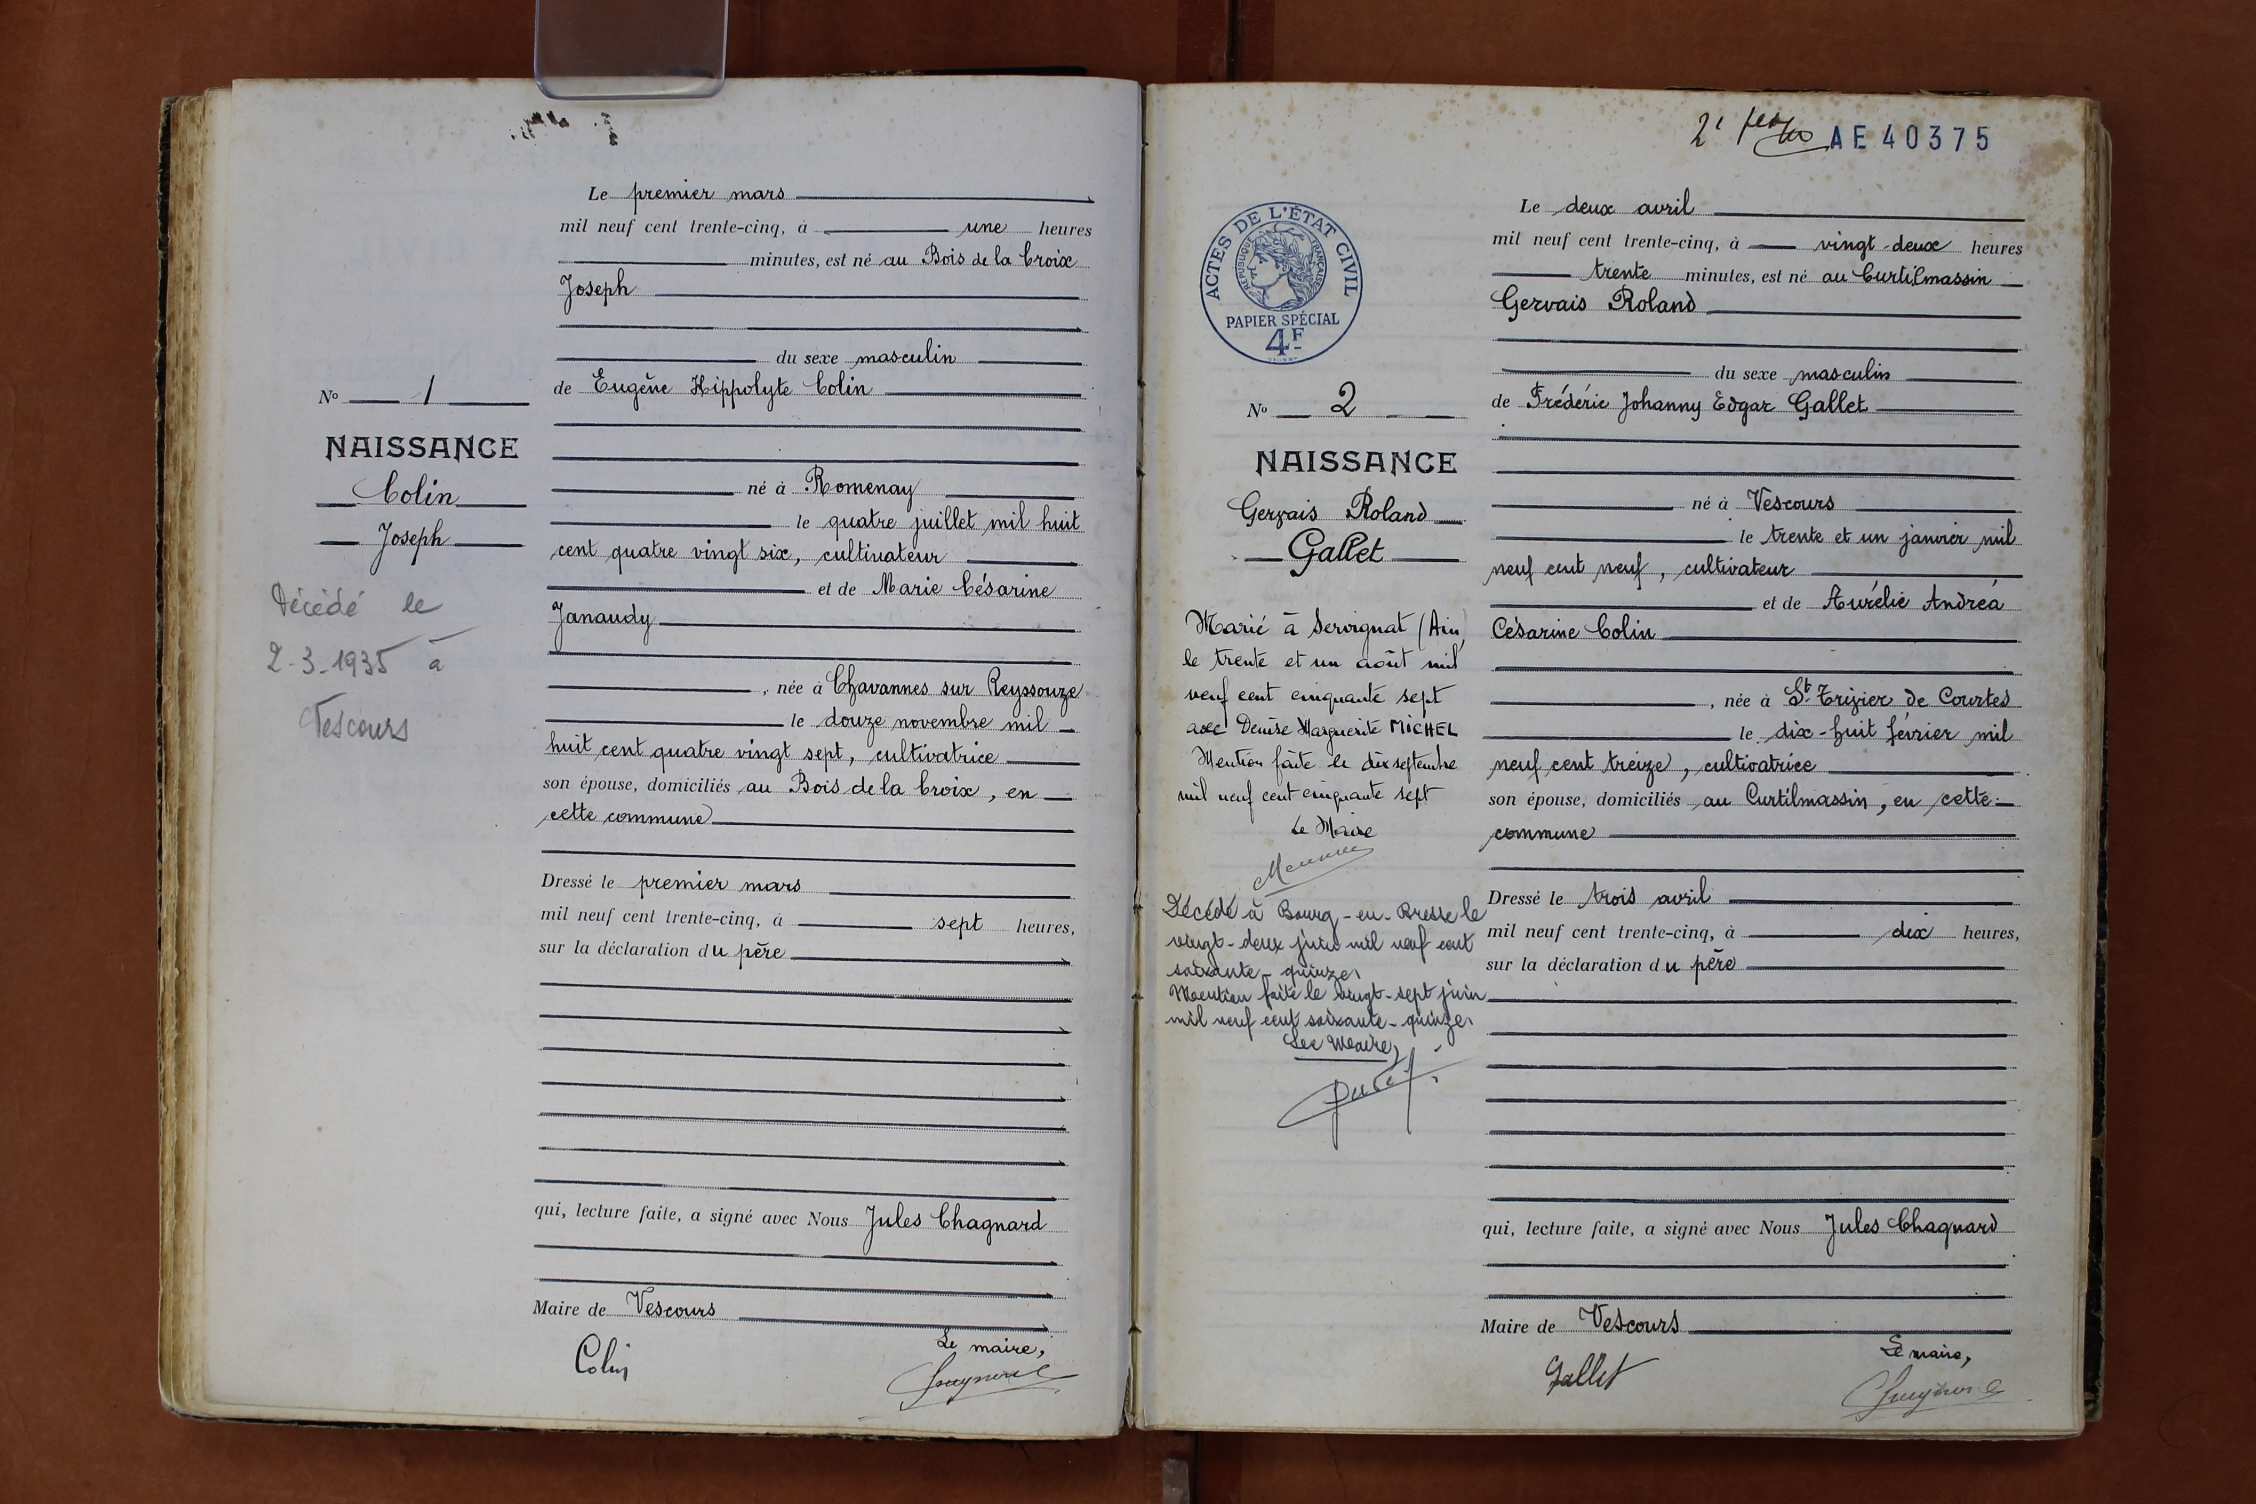 Le premier mars
mil neuf cent trente-cinq, à une heures
minutes, est né au Bois de la Croix
Joseph
du sexe masculin
de Eugène Hippolyte Colin
né à Romenay
le quatre juillet mil huit
cent quatre vingt six, cultivateur
et de Marie Césarine
Janaudy
, née à Chavannes sur Reyssouze
le douze novembre mil
huit cent quatre vingt sept, cultivatrice
son épouse, domiciliés au Bois de la Croix, en
cette commune
Dressé le premier mars
mil neuf cent trente-cinq, à sept heures,
sur la déclaration du père
qui, lecture faite, a signé avec Nous Jules Chagnard
Maire de Vescours
Le maire,
Colin
No 1
NAISSANCE
Colin
Joseph
Décédé le
2-3-1935 à
Vescours
2e
AE 40375
ACTES DE L'ÉTAT CIVIL
RÉPUBLIQUE FRANÇAISE
PAPIER SPÉCIAL
4F
No 2
NAISSANCE
Gervais Roland
Gallet
Marié à Servignat (Ain)
le trente et un août mil
neuf cent cinquante sept
avec Denise Marguerite MICHEL
Mention faite le dix septembre
mil neuf cent cinquante sept
Le Maire
Décédé à Bourg-en-Bresse le
vingt-deux juin mil neuf cent
soixante-quinze
Mention faite le vingt-sept juin
mil neuf cent soixante-quinze
Le Maire,
Le deux avril
mil neuf cent trente-cinq, à vingt-deux heures
trente minutes, est né au Curtilmassin
Gervais Roland
du sexe masculin
de Frédéric Johanny Edgar Gallet
né à Vescours
le trente et un janvier mil
neuf cent neuf, cultivateur
et de Aurélie Andréa
Césarine Colin
, née à St Trivier de Courtes
le dix-huit février mil
neuf cent treize, cultivatrice
son épouse, domiciliés au Curtilmassin, en cette
commune
Dressé le trois avril
mil neuf cent trente-cinq, à dix heures,
sur la déclaration du père
qui, lecture faite, a signé avec Nous Jules Chagnard
Maire de Vescours
Le maire,
Gallet